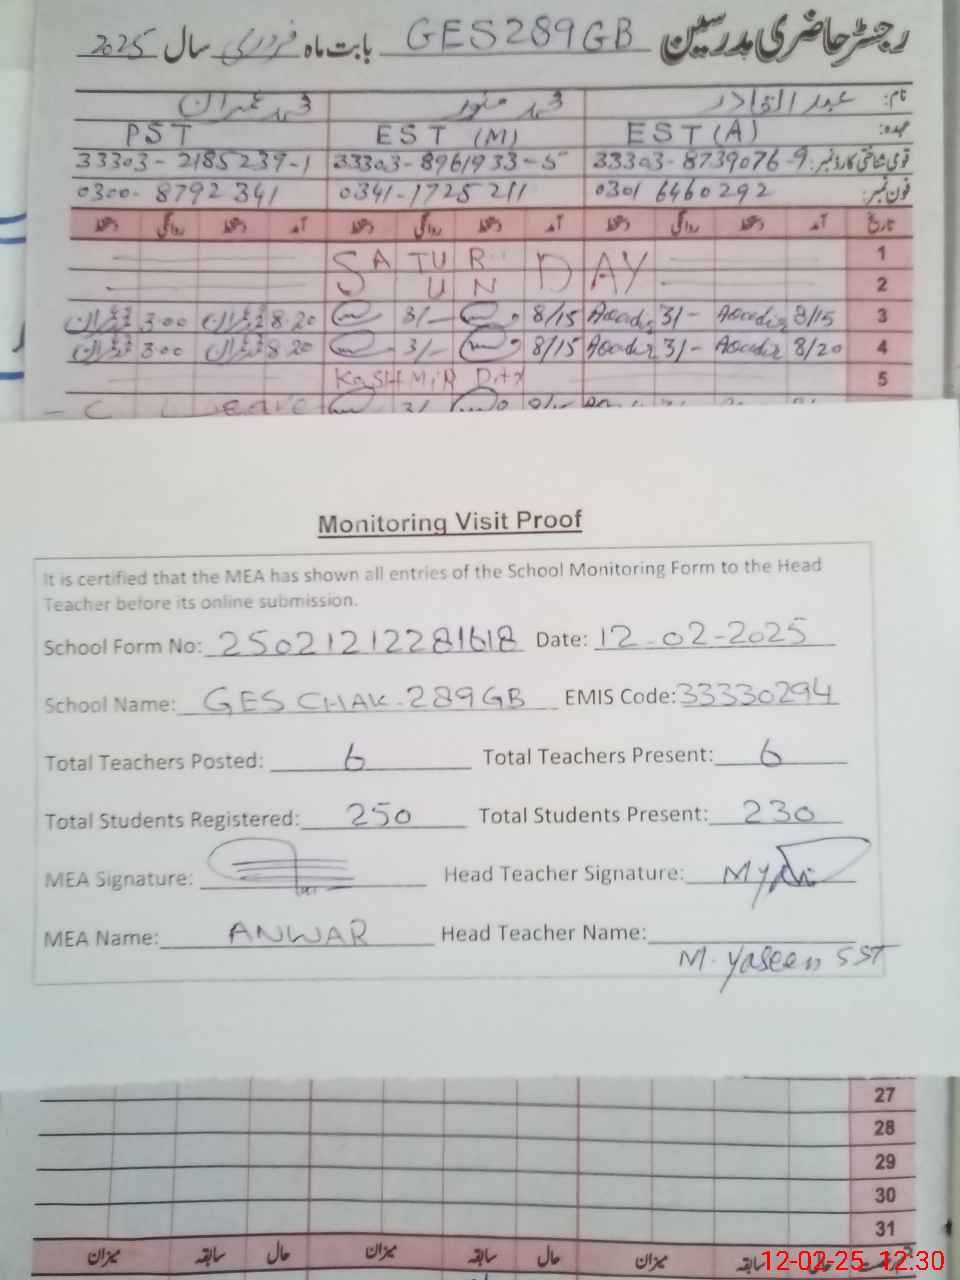 رجسٹر حاضری مدرسین GES289GB بابت ماہ فروری سال 2025
نام: عبدالقادر محمد منور محمد عمران
عہدہ: EST (A) EST (M) PST
قومی شناختی کارڈ نمبر: 33303-8739076-9 33303-8961933-5 33303-2185239-1
فون نمبر: 0301 6460292 0341-1725211 0300-8792341
تاریخ آمد دستخط روانگی دستخط آمد دستخط روانگی دستخط آمد دستخط روانگی دستخط
1 SATURDAY
2 SUN
3 8/15 31- 8/15 3/- 8.20 3.00
4 8/20 31- 8/15 3/- 8.20 3.00
5 KASHMIR DAY
C Leave 3/
Monitoring Visit Proof
It is certified that the MEA has shown all entries of the School Monitoring Form to the Head
Teacher before its online submission.
School Form No: 25021212281618 Date: 12-02-2025
School Name: GES CHAK-289GB EMIS Code: 33330294
Total Teachers Posted: 6 Total Teachers Present: 6
Total Students Registered: 250 Total Students Present: 230
MEA Signature: Head Teacher Signature:
MEA Name: ANWAR Head Teacher Name:
M. Yaseen SST
27
28
29
30
31
حال سابقہ میزان حال سابقہ میزان حال سابقہ میزان
12-02-25 12:30